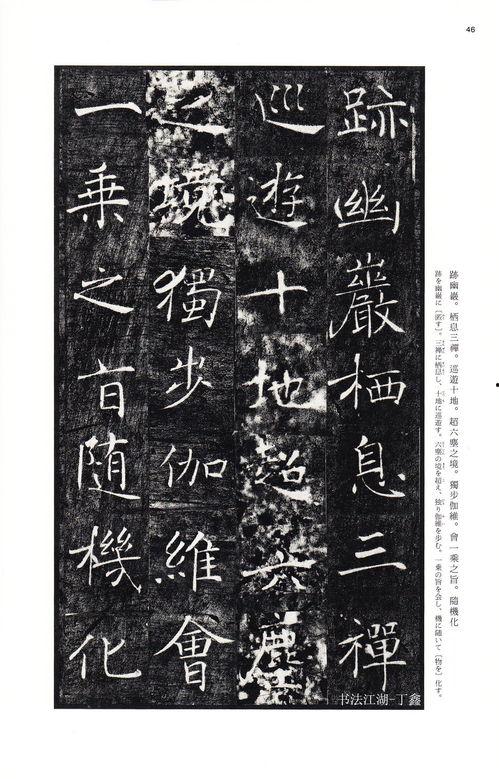 46
跡幽巖栖息三禪
巡遊十地超六塵
之境獨步伽維會
一乘之旨隨機化
跡幽巖。栖息三禪。巡遊十地。超六塵之境。獨步伽維。會一乘之旨。隨機化
跡を幽巖に〔匿す〕。三禅に栖息し、十地に巡遊す。六塵の境を超え、独り伽維を歩む。一乗の旨を会し、機に随いて〔物を〕化す。
书法江湖-丁鑫